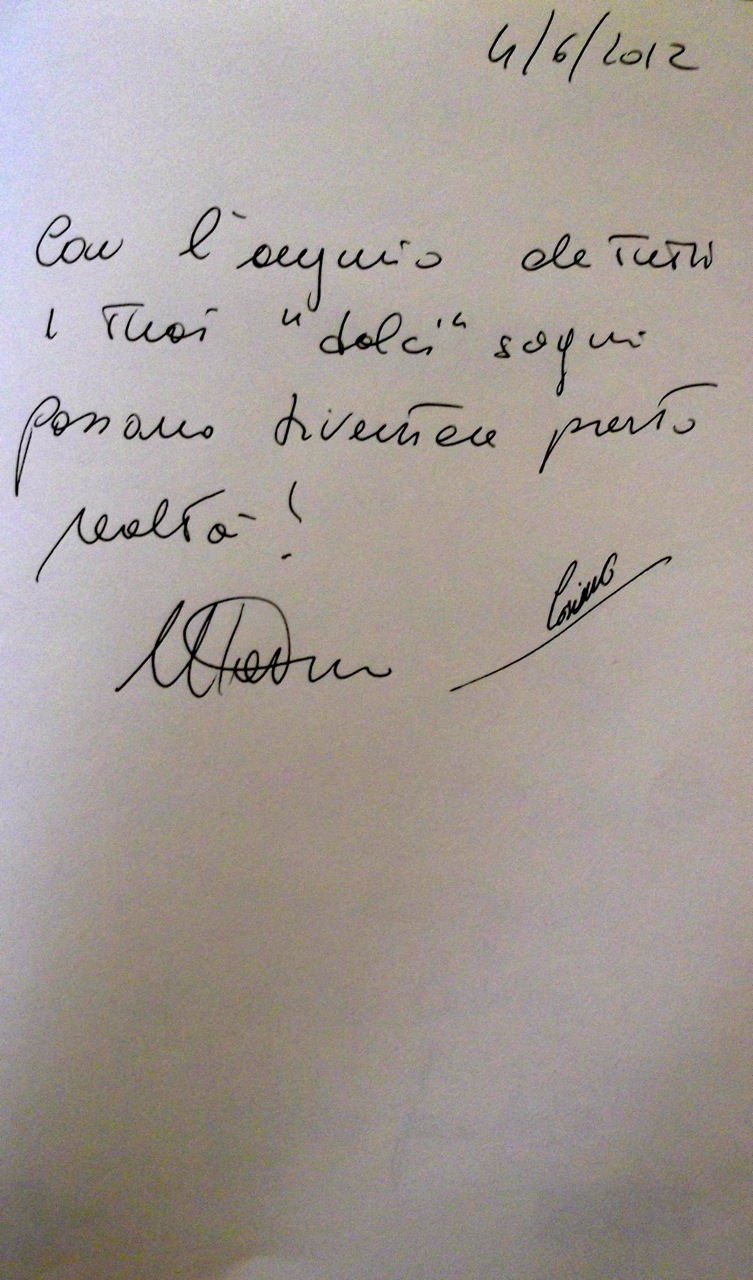 4/6/2012
Con l'augurio che tutti
i tuoi "dolci" sogni
possano diventare presto
realtà!
Cosimo